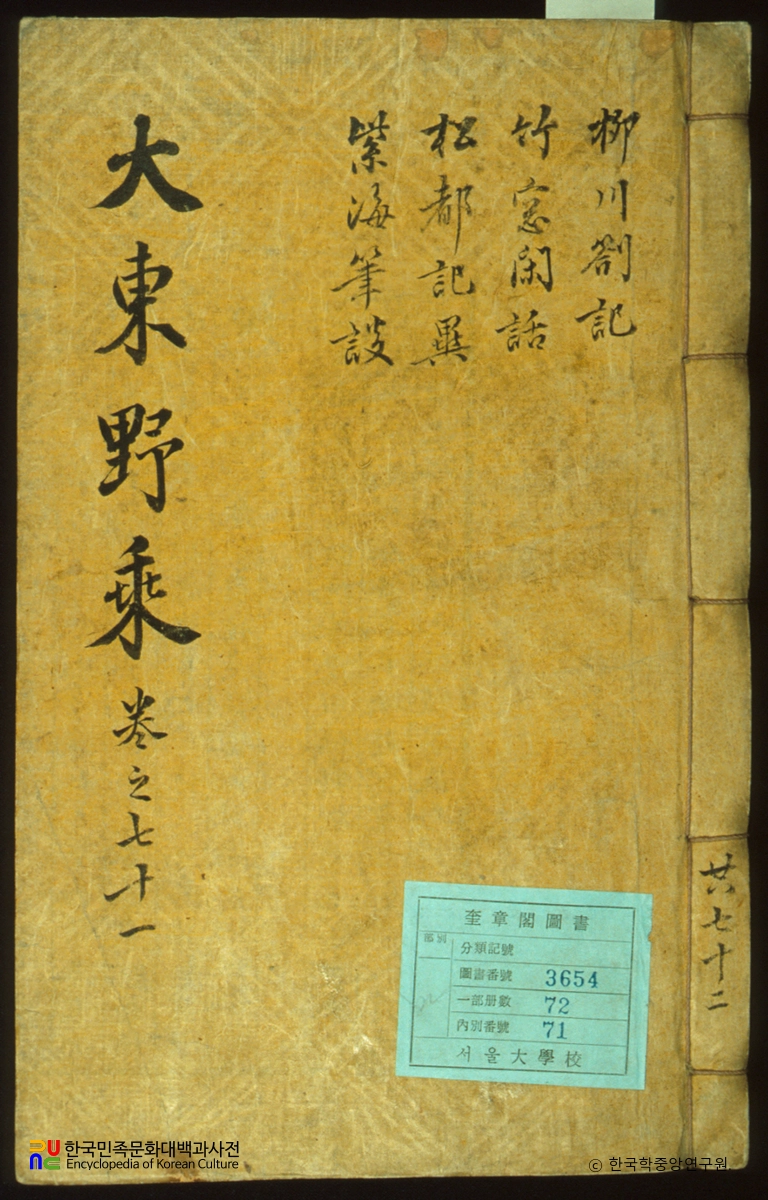 柳川劄記
竹窓閑話
松都記異
紫海筆談
大東野乗 卷之七十一
共七十二
奎章閣圖書
分類記號
圖書番號 3654
一部册數 72
內別番號 71
서울大學校
한국민족문화대백과사전
Encyclopedia of Korean Culture
© 한국학중앙연구원